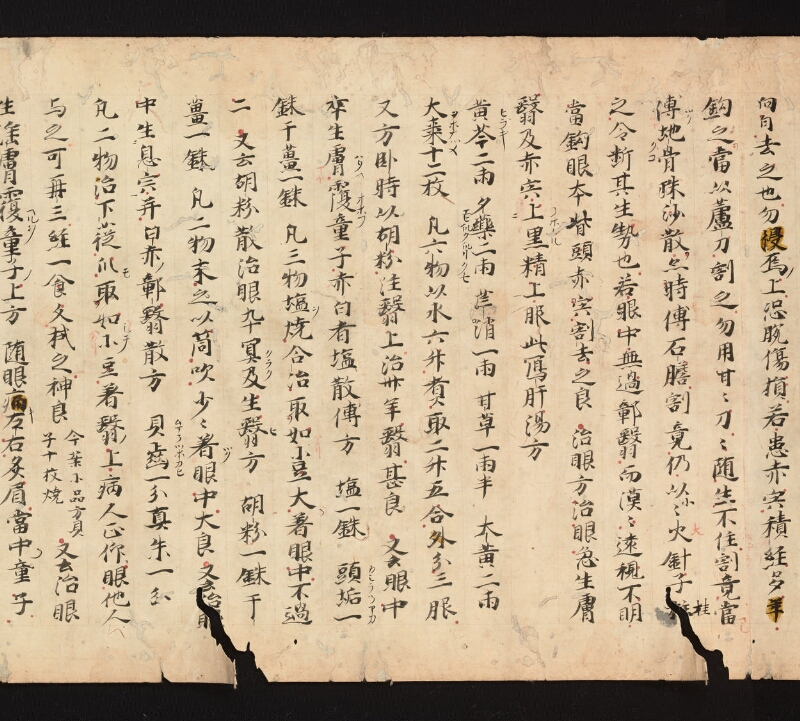 向自去之也勿浸焉上恐脱傷損若患赤宍積経多年
鈎之當以蘆刀割之勿用甘〻刀〻随生不住割竟當
傅地骨珠沙散点時傅石膽割竟仍以小〻火針子
之令断其生勢也若眼中無過鄣翳而漠〻遠視不明
當鈎眼本眥頭赤宍割去之良 治眼方治眼忽生膚
翳及赤宍上黒精上服此寫肝湯方
黄芩二兩 夕藥二兩 芒消一兩 甘草一兩半 大黄二兩
大棗十二枚 凡六物以水六升煮取二升五合外分三服
又方卧時以胡粉注翳上治卅年翳甚良 又云眼中
卒生膚覆童子赤白者塩散傅方 塩一銖 頭垢一
銖干薑一銖 凡三物塩燒合治取如小豆大著眼中不過
二 又云胡粉散治眼卒冥及生翳方 胡粉一銖干
薑一銖 凡二物末之以筒吹少〻著眼中大良 又云治眼
中生息宍并白赤鄣翳散方 貝齒一分真朱一分
凡二物治下莚爪取如小豆著翳上病人正仰眼他人
与之可再三経一食久拭之神良 今案小品方貝子十枚燒 又云治眼
生瘀膚覆童子上方 随眼病左右灸眉當中童子